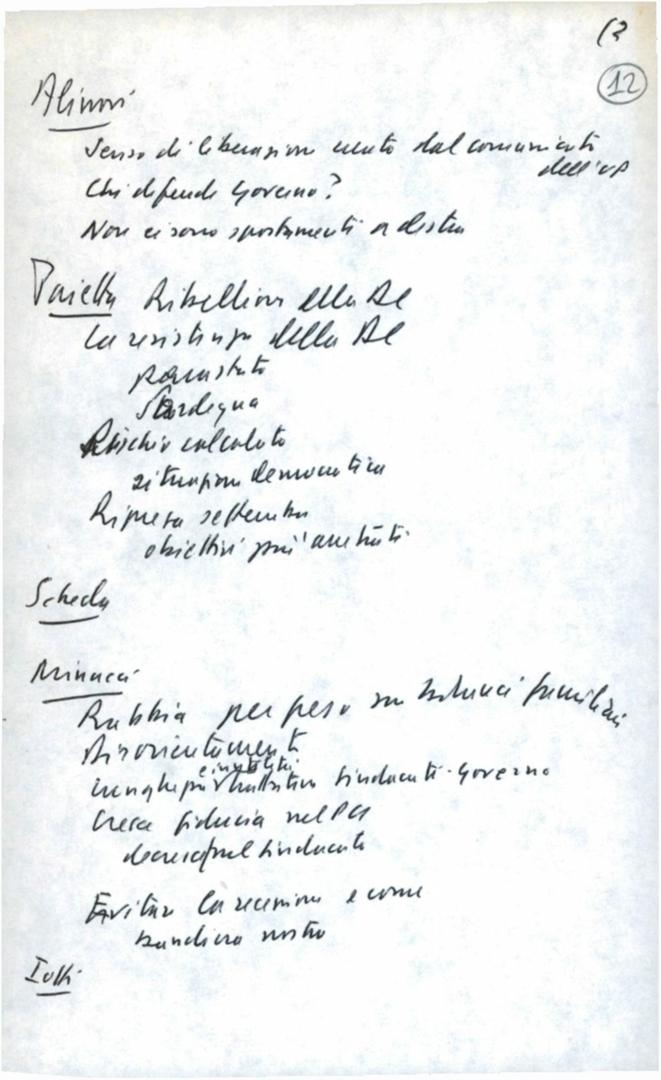 12
Alinovi
Senso di liberazione creato dal comunicato
dell'UP
Chi difende Governo?
Non ci sono spostamenti a destra
Pajetta Ribellione della DC
La resistenza della DC
parastato
Sardegna
Rischio calcolato
situazione democratica
Ripresa settembre
obiettivi più arretrati
Scheda
Minucci
Rabbia per peso su bilanci familiari
Disorientamento
lunghe più trattative sindacati-Governo
Cresce fiducia nel PCI
decresce nel sindacato
Evitare la recessione e come
bandiera nostra
Iotti